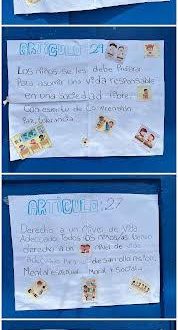 ARTICULO: 29
Los niños se les debe preparar
Para asumir una vida responsable
en una sociedad libre,
Con espiritu de comprensión
Paz, tolerancia
ARTICULO: 27
Derecho a un nivel de vida
Adecuado todos los niños/as tienen
derecho a un nivel de vida
de sarrollo Fisico,
Mental Espiritual Moral y Social.